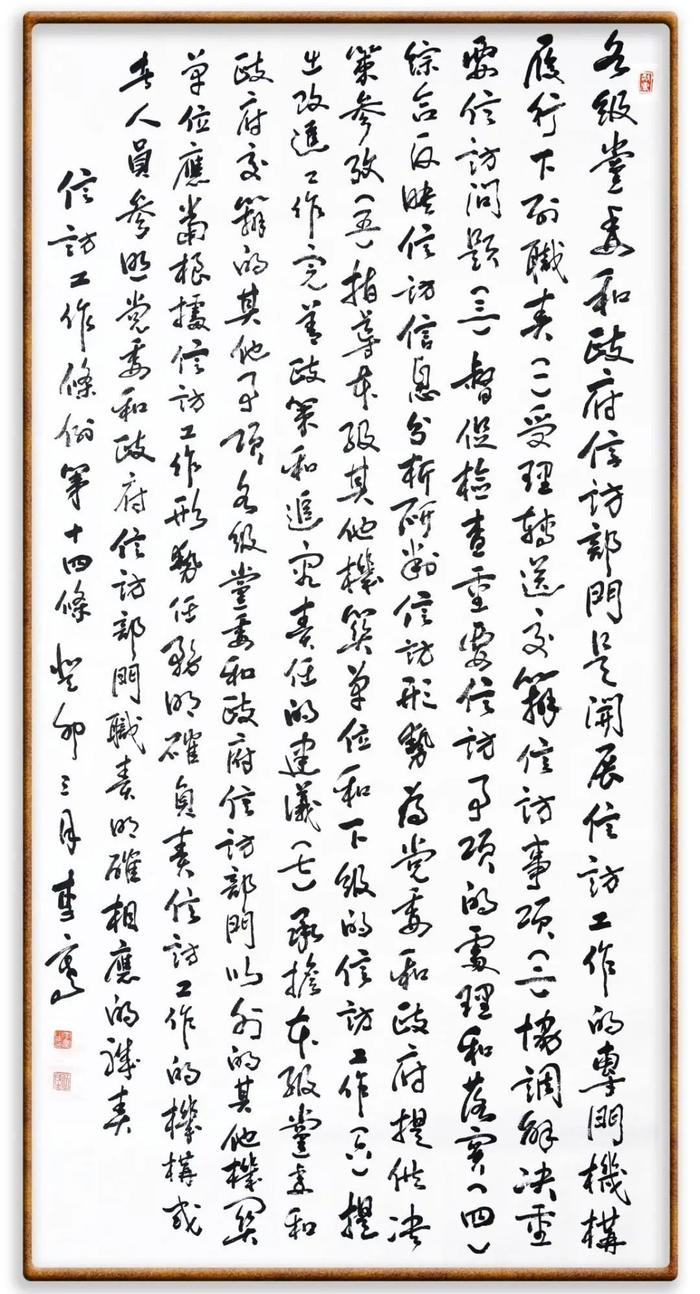 各級黨委和政府信訪部門是開展信訪工作的專門機構
履行下列職責(一)受理轉送交辦信訪事項(二)協調解決重
要信訪問題(三)督促檢查重要信訪事項的處理和落實(四)
綜合反映信訪信息分析研判信訪形勢為党委和政府提供决
策參考(五)指導本級其他機關單位和下級的信訪工作(六)提
出改進工作完善政策和追究責任的建議(七)承擔本級黨委和
政府交辦的其他事項各級黨委和政府信訪部門以外的其他機關
單位應當根據信訪工作形勢任務明確負責信訪工作的機構或
者人員參照党委和政府信訪部門職責明確相應的職責
信訪工作條例第十四條 癸卯三月 李